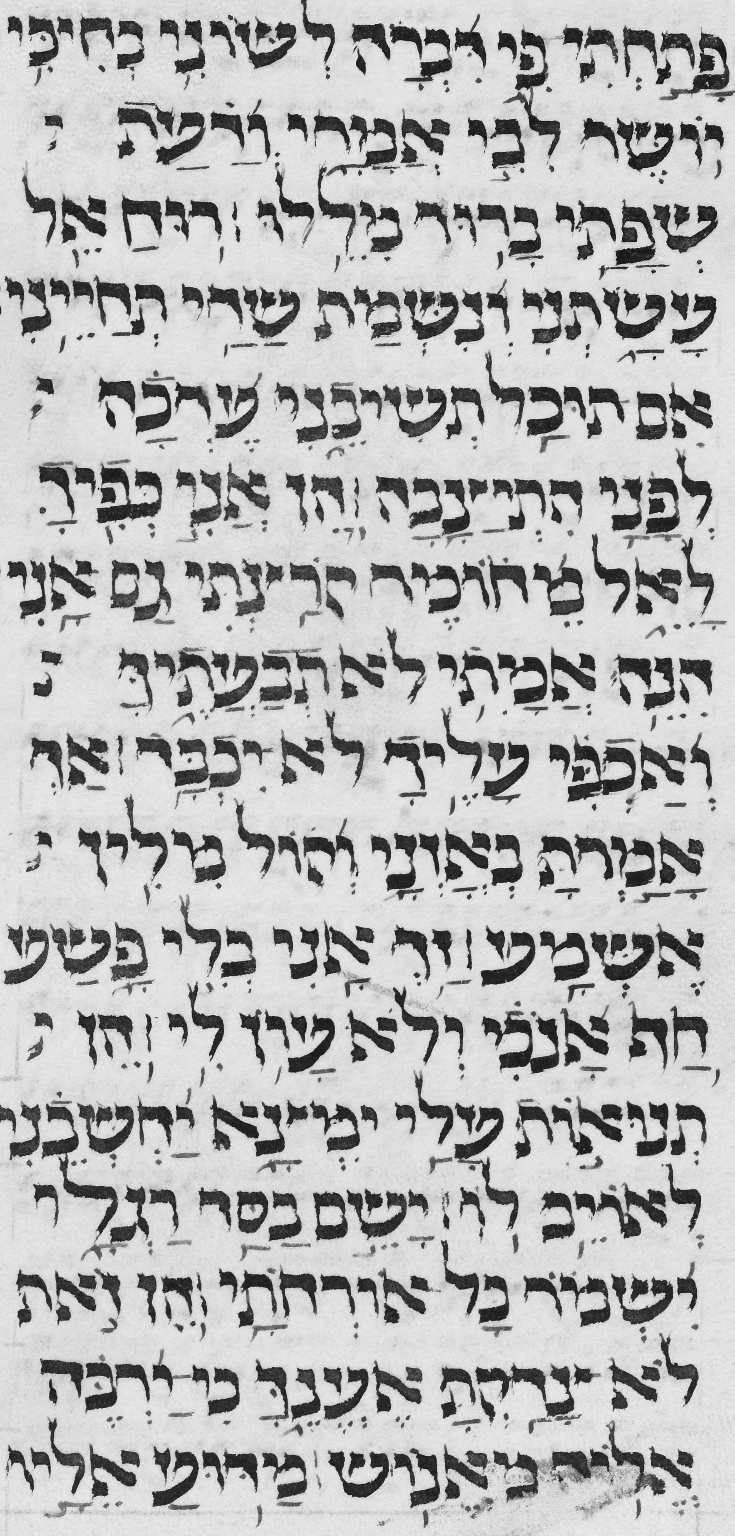 פָּתַחְתִּי פִי דִּבְּרָה לְשׁוֹנִי בְחִיכִּי
יוֹשֶׁר לִבִּי אֲמָרָי וְדַעַת
שְׂפָתַי בָּרוּר מִלֵּלוּ׃ רוּחַ אֵל
עָשָׂתְנִי וְנִשְׁמַת שַׁדַּי תְּחַיֵּינִי׃
אִם תּוּכַל תְּשִׁיבֵנִי עֶרְכָה
לְפָנַי הִתְיַצָּבָה׃ הֵן אֲנִי כְפִיךָ
לָאֵל מֵחוֹמֶר קֹרַצְתִּי גַם אָנִי׃
הִנֵּה אֵמָתִי לֹא תְבַעֲתֶךָּ
וְאַכְפִּי עָלֶיךָ לֹא יִכְבָּד׃ אַךְ
אָמַרְתָּ בְאָזְנָי וְקוֹל מִלִּין
אֶשְׁמָע׃ זַךְ אֲנִי בְּלִי פָשַׁע
חַף אָנֹכִי וְלֹא עָוֹן לִי׃ הֵן
תְּנוּאוֹת עָלַי יִמְצָא יַחְשְׁבֵנִי
לְאוֹיֵב לוֹ׃ יָשֵׂם בַּסַּד רַגְלָי
יִשְׁמוֹר כָּל אוֹרְחֹתָי׃ הֵן זֹאת
לֹא צָדַקְתָּ אֶעֱנֶךָּ כִּי יִרְבֶּה
אֱלוֹהַּ מֵאֱנוֹשׁ׃ מַדּוּעַ אֵלָיו